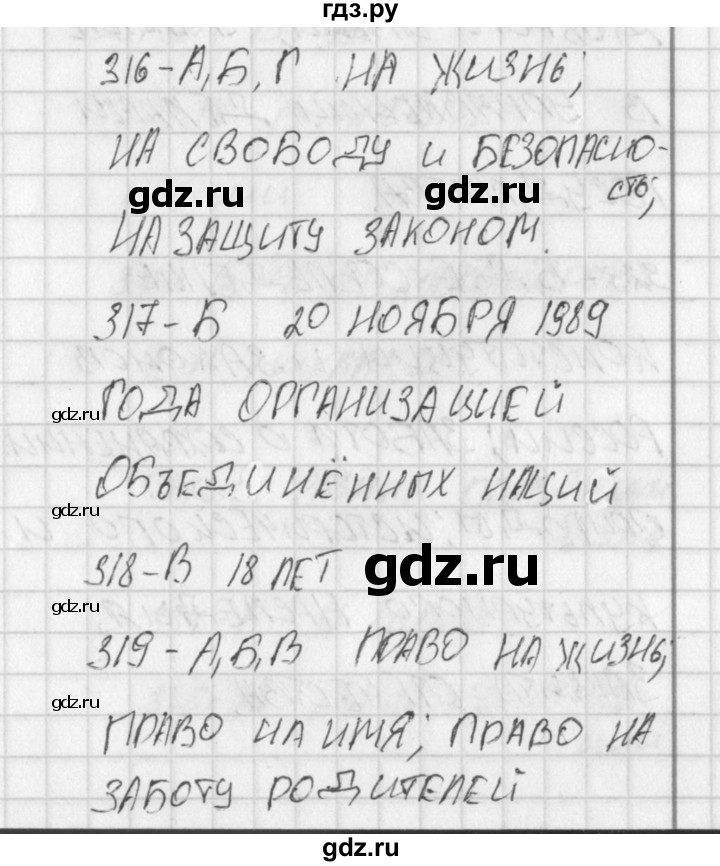 гдз.ру
316-А,Б,Г НА ЖИЗНЬ;
НА СВОБОДУ И БЕЗОПАСНО-
СТЬ;
gdz.ru gdz.ru
НА ЗАЩИТУ ЗАКОНОМ.
317-Б 20 НОЯБРЯ 1989
gdz.ru
ГОДА ОРГАНИЗАЦИЕЙ
ОБЪЕДИНЁННЫХ НАЦИЙ
gdz.ru
318-В 18 ЛЕТ gdz.ru
gdz.ru
319-А,Б,В ПРАВО НА ЖИЗНЬ;
gdz.ru
ПРАВО НА ИМЯ; ПРАВО НА
ЗАБОТУ РОДИТЕЛЕЙ
gdz.ru